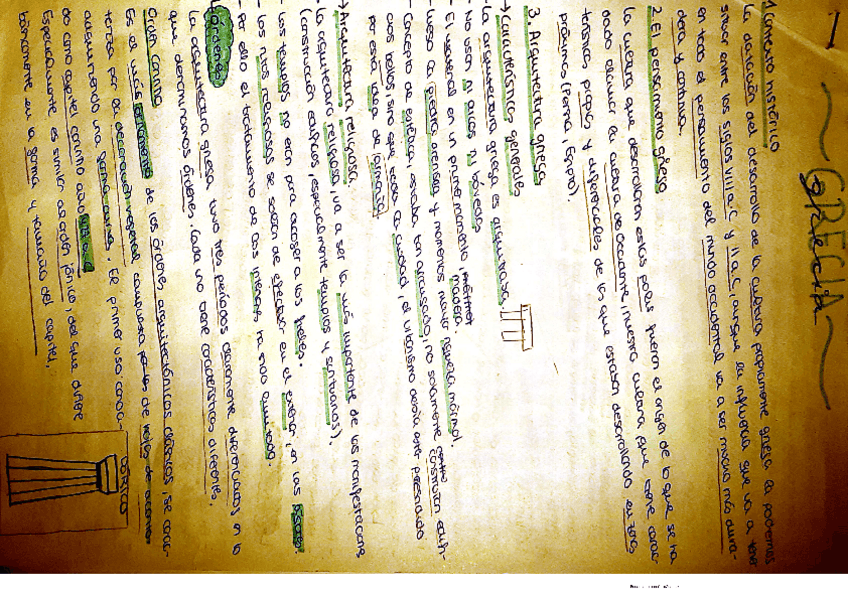 GRECIA
1. Contexto histórico
La duración del desarrollo de la cultura propiamente griega la podremos
situar entre los siglos VIII a.C y II a.C, aunque la influencia que va a tener
en todo el pensamiento del mundo occidental va a ser mucho más dura-
dera y continua.
2. El pensamiento griego
La cultura que desarrollaron estas polis fueron el origen de lo que se ha
dado llamar la cultura de occidente, nuestra cultura que tiene carac-
terísticas propias y diferenciales de los que estaban desarrollando en zonas
próximas (Persia, Egipto).
3. Arquitectura griega
→ Características generales
- La arquitectura griega es arquitrabada
- No usan ni arcos ni bóvedas
- El material en un primer momento madera.
luego la piedra arenisca y momentos mayor riqueza mármol.
- Concepto de estética, estaba tan arraigado, no solamente construían edifi-
cios bellos, sino que toda la ciudad, el urbanismo debía estar presidido
por esta idea de
→ Arquitectura religiosa
- La arquitectura religiosa, va a ser la más importante de las manifestaciones
(construcción edificios, especialmente templos y santuarios).
- Los templos no eran para acoger a los fieles.
- Los ritos religiosos se solían de efectuar en el exterior, en las
- Por ello el tratamiento de los ha sido
Órdenes
La arquitectura griega tuvo tres períodos claramente diferenciados en lo
que denominamos órdenes. Cada uno tiene características diferentes.
Orden corintio
Es el más ornamentado de los órdenes arquitectónicos clásicos, se carac-
teriza por su decoración vegetal compuesta por de hojas de acanto
adquiriendo una forma curva. El primer uso conoci-
do como capitel corintio data
Especialmente es similar al orden jónico, del que difiere
básicamente en la forma y tamaño del capitel.